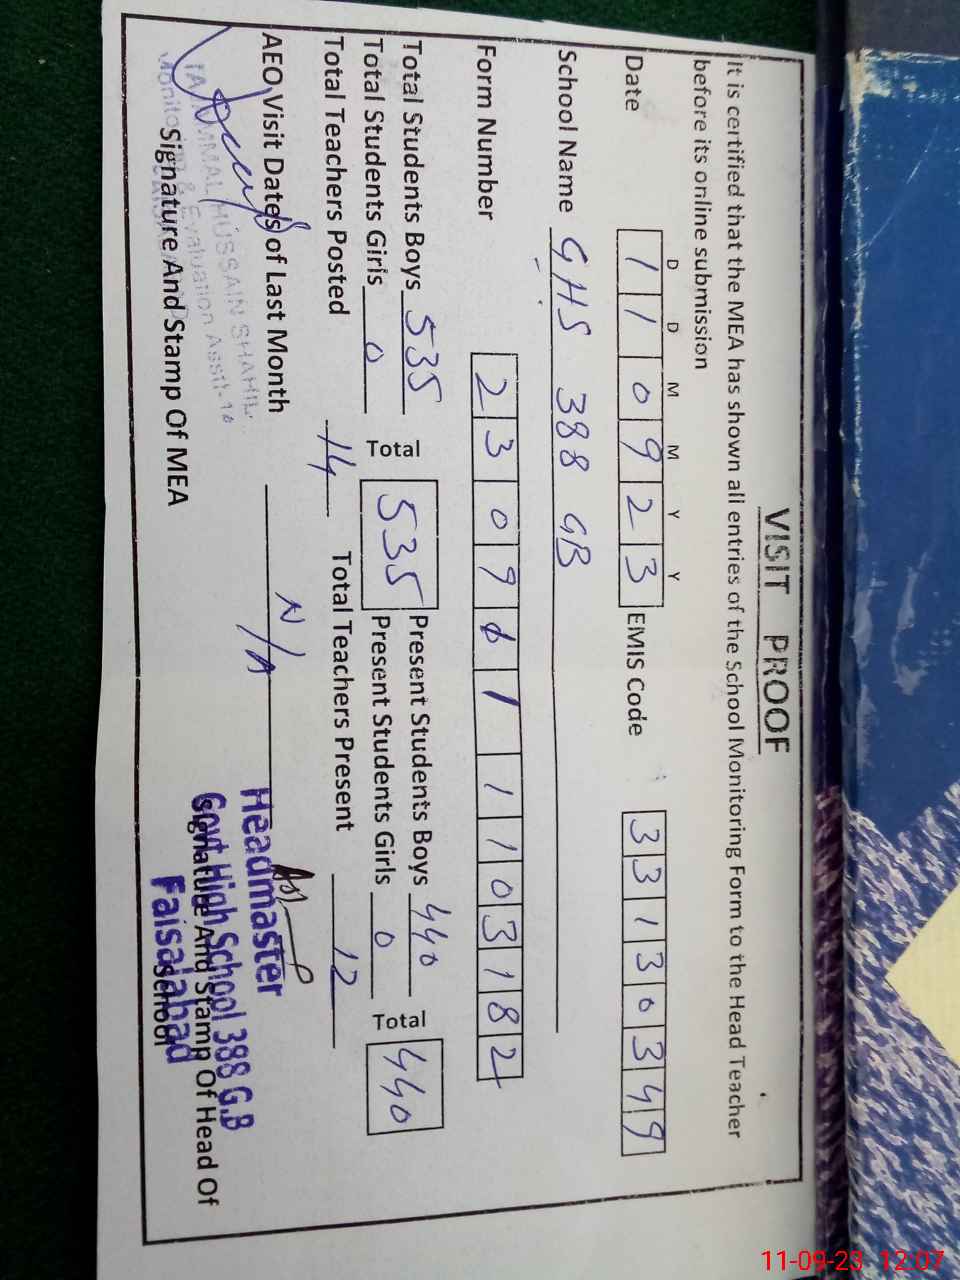 VISIT PROOF
It is certified that the MEA has shown all entries of the School Monitoring Form to the Head Teacher
before its online submission
D D M M Y Y
Date 1 1 0 9 2 3 EMIS Code 3 3 1 3 0 3 4 9
School Name GHS 388 GB
Form Number 2 3 0 9 1 1 1 0 3 1 8 2
Total Students Boys 535 Total 535 Present Students Boys 440 Total 440
Total Students Girls 0 Present Students Girls 0
Total Teachers Posted 14 Total Teachers Present 12
AEO Visit Date's of Last Month N/A
HUSSAIN SHAHID
Monitoring & Evaluation Asstt-10
Signature And Stamp Of MEA
Headmaster
Govt High School 388 G.B
Faisalabad
Signature And Stamp Of Head Of
School
11-09-23 12:07